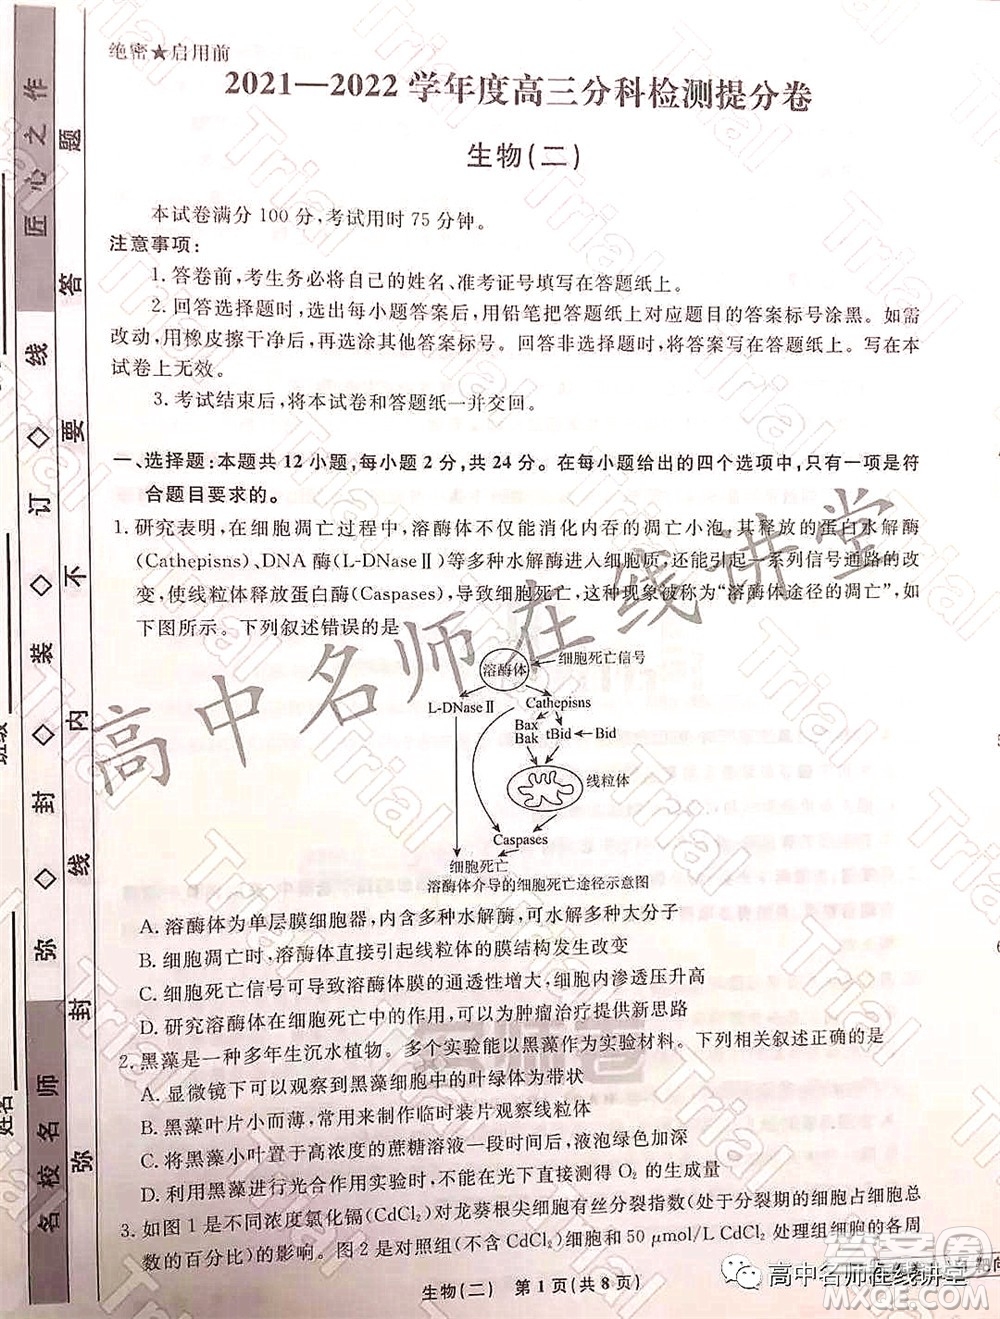 绝密★启用前
2021—2022学年度高三分科检测提分卷
生物(二)
本试卷满分100分,考试用时75分钟。
注意事项:
1. 答卷前,考生务必将自己的姓名、准考证号填写在答题纸上。
2. 回答选择题时,选出每小题答案后,用铅笔把答题纸上对应题目的答案标号涂黑。如需
改动,用橡皮擦干净后,再选涂其他答案标号。回答非选择题时,将答案写在答题纸上。写在本
试卷上无效。
3. 考试结束后,将本试卷和答题纸一并交回。
一、选择题:本题共12小题,每小题2分,共24分。在每小题给出的四个选项中,只有一项是符
合题目要求的。
1. 研究表明,在细胞凋亡过程中,溶酶体不仅能消化内吞的凋亡小泡,其释放的蛋白水解酶
(Cathepisns)、DNA酶(L-DNaseⅡ)等多种水解酶进入细胞质,还能引起一系列信号通路的改
变,使线粒体释放蛋白酶(Caspases),导致细胞死亡,这种现象被称为“溶酶体途径的凋亡”,如
下图所示。下列叙述错误的是
溶酶体
细胞死亡信号
L-DNaseⅡ
Cathepisns
Bax
Bak
tBid
Bid
线粒体
Caspases
细胞死亡
溶酶体介导的细胞死亡途径示意图
A. 溶酶体为单层膜细胞器,内含多种水解酶,可水解多种大分子
B. 细胞凋亡时,溶酶体直接引起线粒体的膜结构发生改变
C. 细胞死亡信号可导致溶酶体膜的通透性增大,细胞内渗透压升高
D. 研究溶酶体在细胞死亡中的作用,可以为肿瘤治疗提供新思路
2. 黑藻是一种多年生沉水植物。多个实验能以黑藻作为实验材料。下列相关叙述正确的是
A. 显微镜下可以观察到黑藻细胞中的叶绿体为带状
B. 黑藻叶片小而薄,常用来制作临时装片观察线粒体
C. 将黑藻小叶置于高浓度的蔗糖溶液一段时间后,液泡绿色加深
D. 利用黑藻进行光合作用实验可直接测得O₂的生成量
3. 如图1是不同浓度氯化镉(CdCl₂)对龙葵根尖细胞有丝分裂指数(处于分裂期的细胞占细胞总
数的百分比)的影响。图2是对照组(不含CdCl₂)细胞和50 μmol/L CdCl₂处理组细胞的各周
生物(二) 第1页(共8页)
匠心之作
名校名师
姓名
班级
弥◇封◇装◇订◇线
弥封线内不要答题
高中名师在线讲堂
高中名师在线讲堂
答案圈
MXQE.COM
Trial